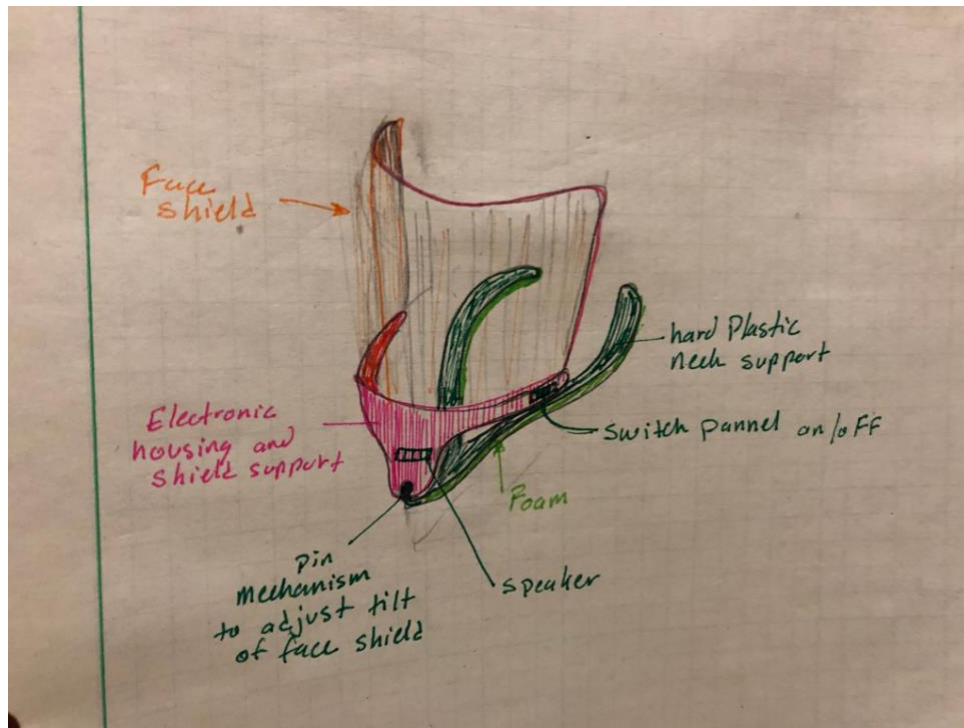 Face
shield
hard Plastic
neck support
Electronic
housing and
shield support
switch pannel on/oFF
Foam
pin
mechanism
to adjust tilt
of face shield
speaker